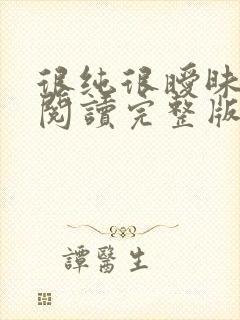 很纯很曖昧
閱讀完整版
譚醫生